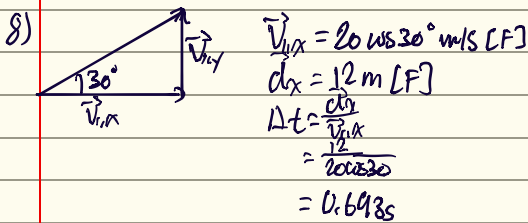 8)
30°
V⃗₁,y
V⃗₁,x
V⃗₁,x = 20 cos30° m/s [F]
d⃗ₓ = 12 m [F]
Δt = d⃗ₓ / V⃗₁,x
= 12 / 20cos30
= 0.693s